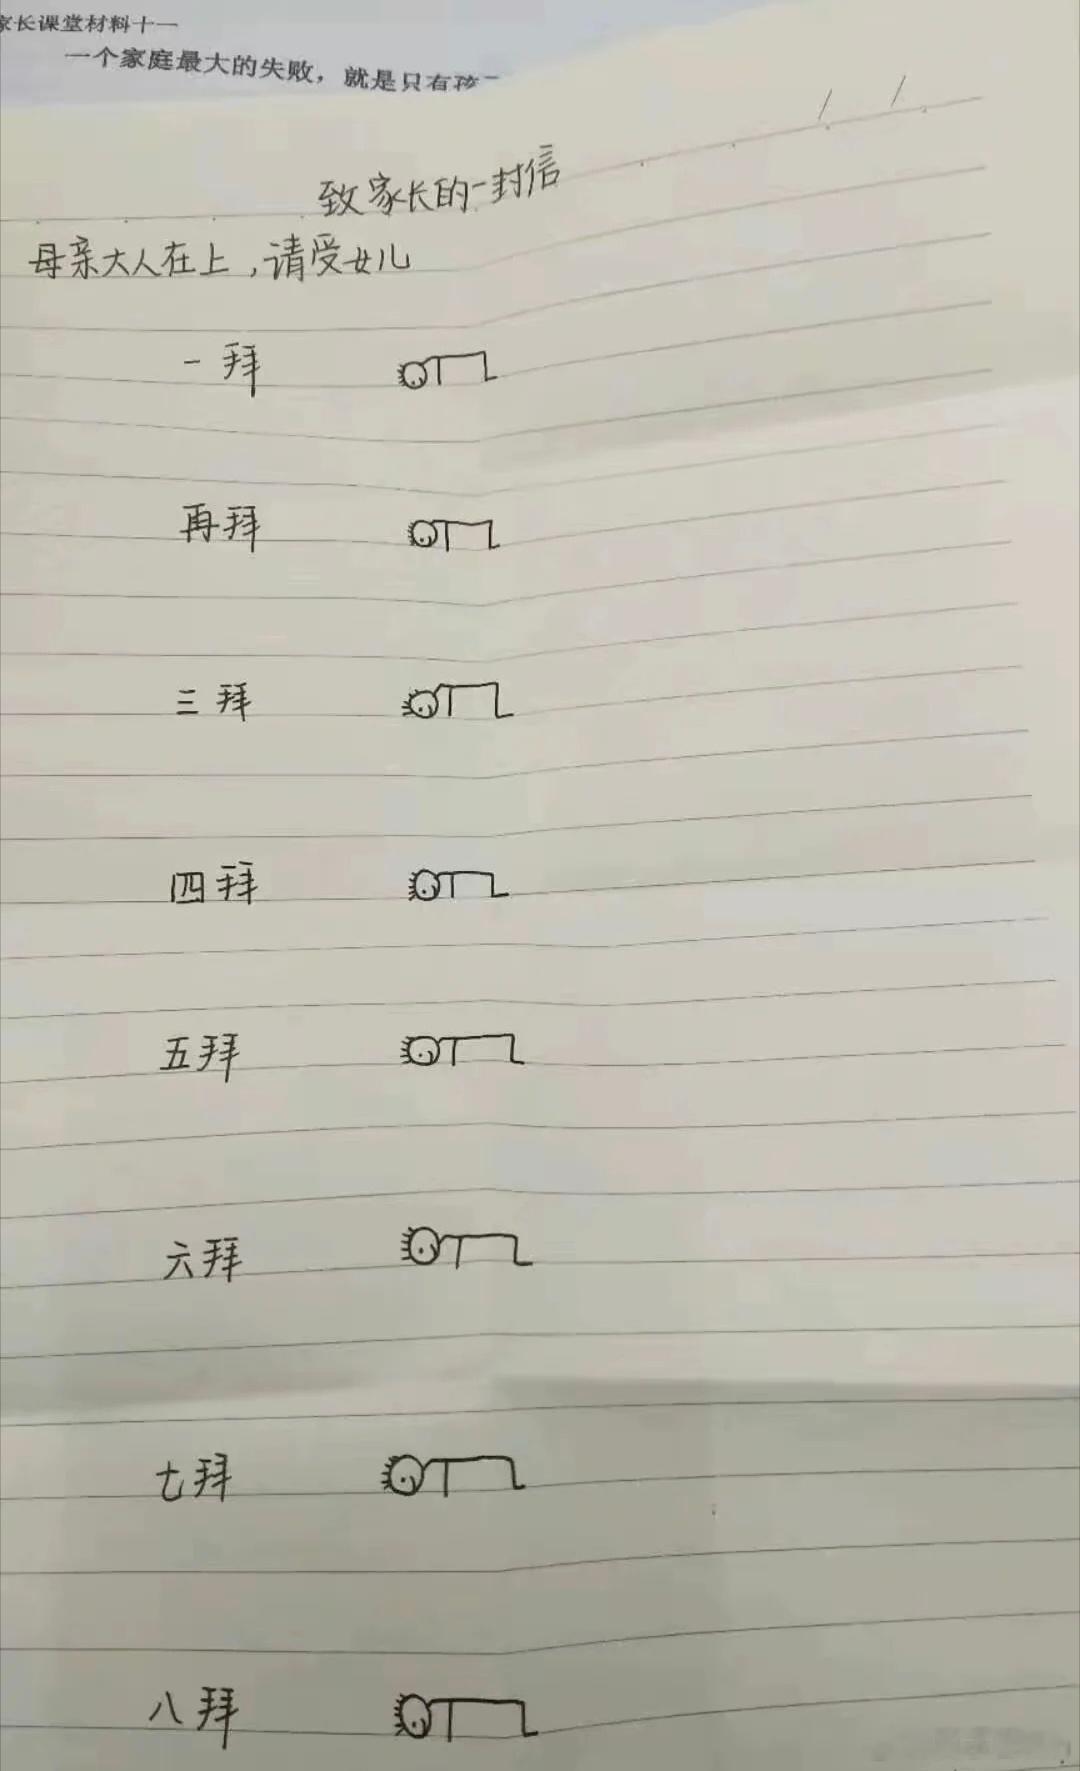 家长课堂材料十一
一个家庭最大的失败，就是只有孩
致家长的一封信
母亲大人在上，请受女儿
一拜
再拜
三拜
四拜
五拜
六拜
七拜
八拜